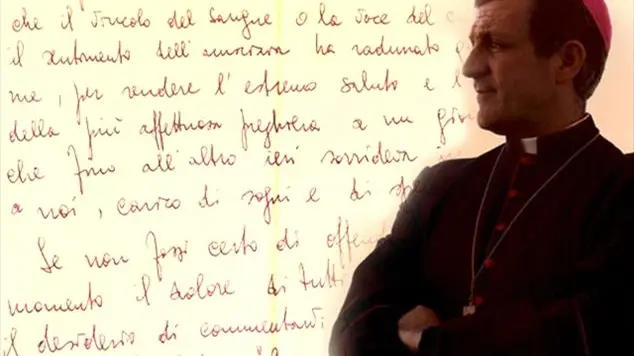 che il vincolo del sangue o la voce del
il sentimento dell'amicizia ha radunato
me, per rendere l'estremo saluto e
della più affettuosa preghiera a un
che fino all'altro ieri sorrideva
a noi, carico di sogni e di
Se non fossi certo di
momento il dolore di tutti
il desiderio di